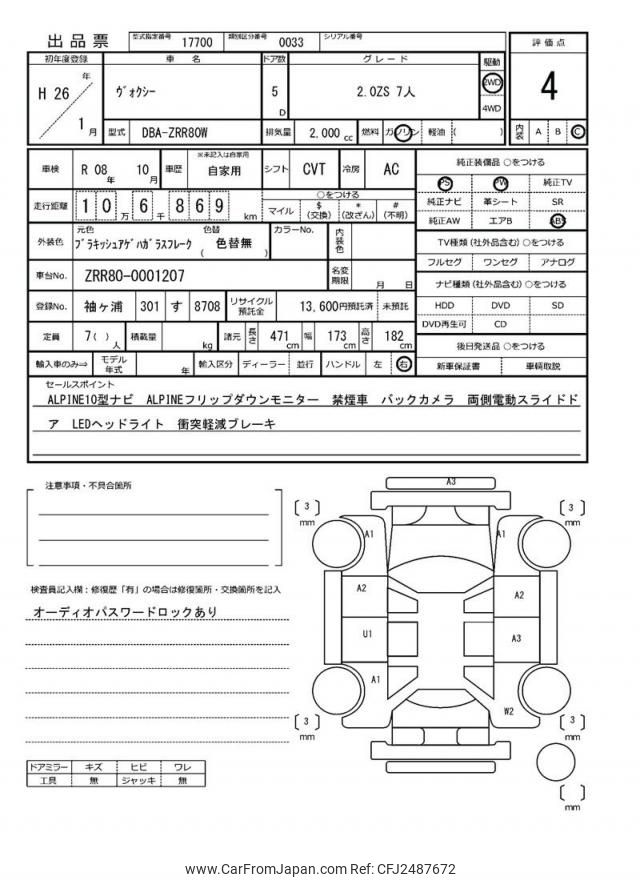 出品票
型式指定番号 17700 類別区分番号 0033 シリアル番号
初年度登録 車名 ドア数 グレード 駆動 評価点
H 26 年 1 月
ヴォクシー
5 D
2.0ZS 7人
2WD
4WD
4
型式 DBA-ZRR80W 排気量 2,000 cc 燃料 ガソリン 軽油 ( ) 内装 A B C
車検 R 08 年 10 月 車歴 ※未記入は自家用 自家用 シフト CVT 冷房 AC
純正装備品 ○をつける
PS PW 純正TV
純正ナビ 革シート SR
純正AW エアB ABS
走行距離 10万6千869 km
○をつける
マイル $(交換) *(改ざん) #(不明)
外装色 元色 ブラキッシュアゲハガラスフレーク 色替 ( 色替無 ) カラーNo. 内装色
TV種類 (社外品含む) ○をつける
フルセグ ワンセグ アナログ
車台No. ZRR80-0001207 名変期限 月 日
ナビ種類 (社外品含む) ○をつける
HDD DVD SD
DVD再生可 CD
登録No. 袖ヶ浦 301 す 8708 リサイクル預託金 13,600円預託済 未預託
定員 7( ) 人 積載量 kg 諸元 長さ 471 cm 幅 173 cm 高さ 182 cm
後日発送品 ○をつける
新車保証書 車輌取説
輸入車のみ⇒ モデル年式 年 輸入区分 ディーラー 並行 ハンドル 左 右
セールスポイント
ALPINE10型ナビ ALPINEフリップダウンモニター 禁煙車 バックカメラ 両側電動スライドド
ア LEDヘッドライト 衝突軽減ブレーキ
注意事項・不具合箇所
検査員記入欄：修復歴「有」の場合は修復箇所・交換箇所を記入
オーディオパスワードロックあり
A3
[ 3 ] mm
[ 3 ] mm
A1
A1
A2
A2
U1
A3
A1
W2
[ 3 ] mm
[ 3 ] mm
[ ] mm
ドアミラー キズ ヒビ ワレ
工具 無 ジャッキ 無
www.CarFromJapan.com Ref: CFJ2487672